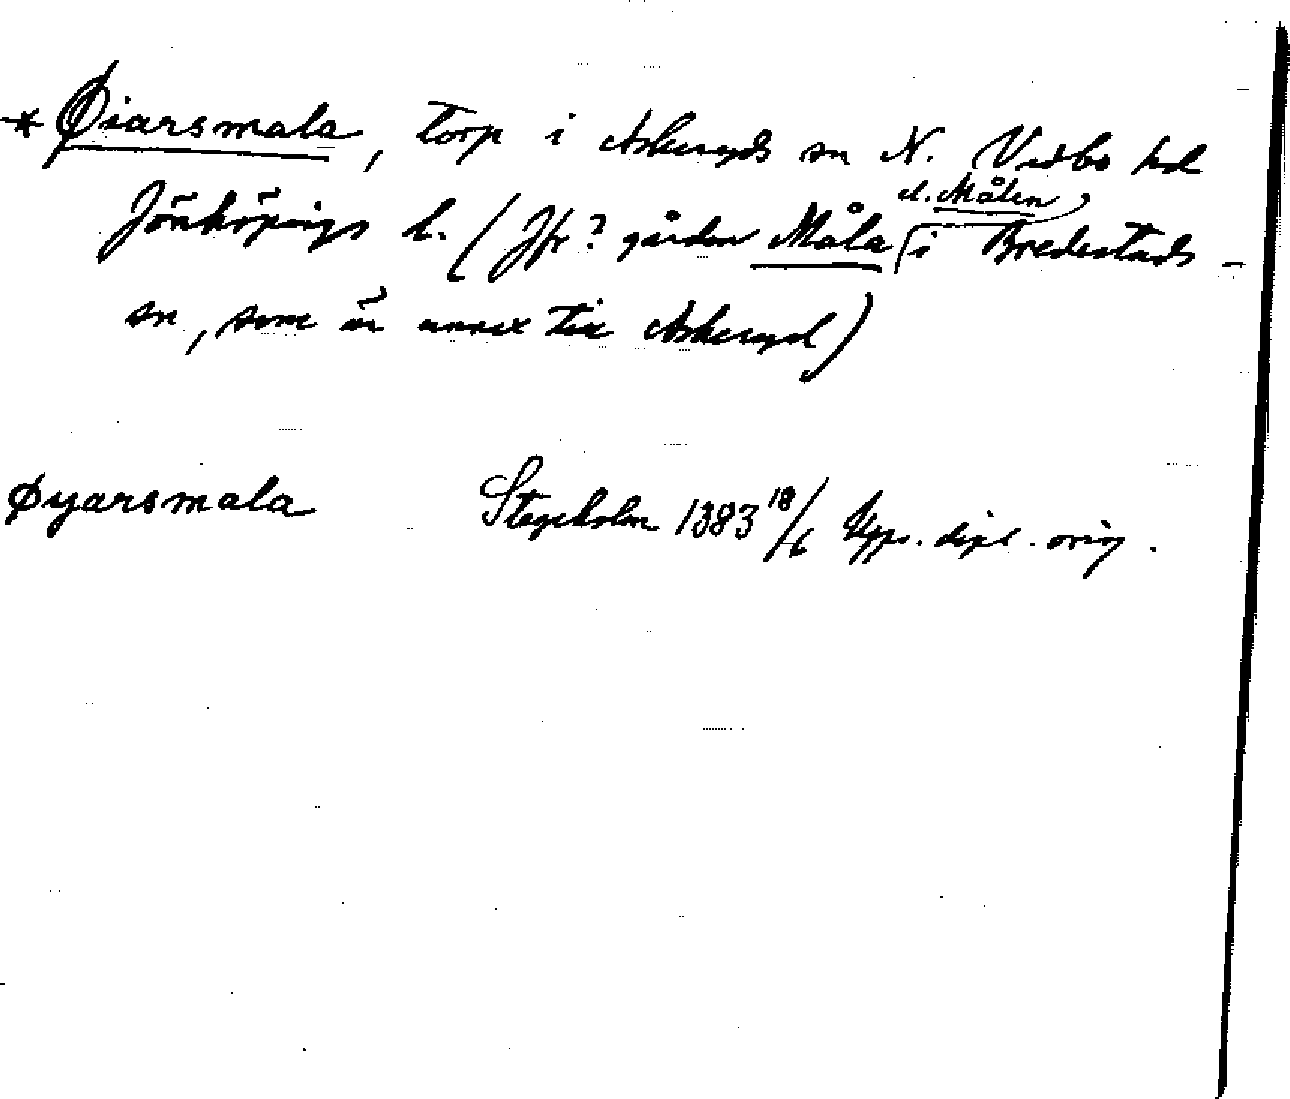 * Øiarsmala, torp i Askeryds sn N. Vedbo hd
Jönköpings l. (Jfr? gården Måla el. Målen i Bredestads
sn, som är annex till Askeryd)
Øyarsmala Stegeholm 1383 18/6 Upps. dipl. orig.